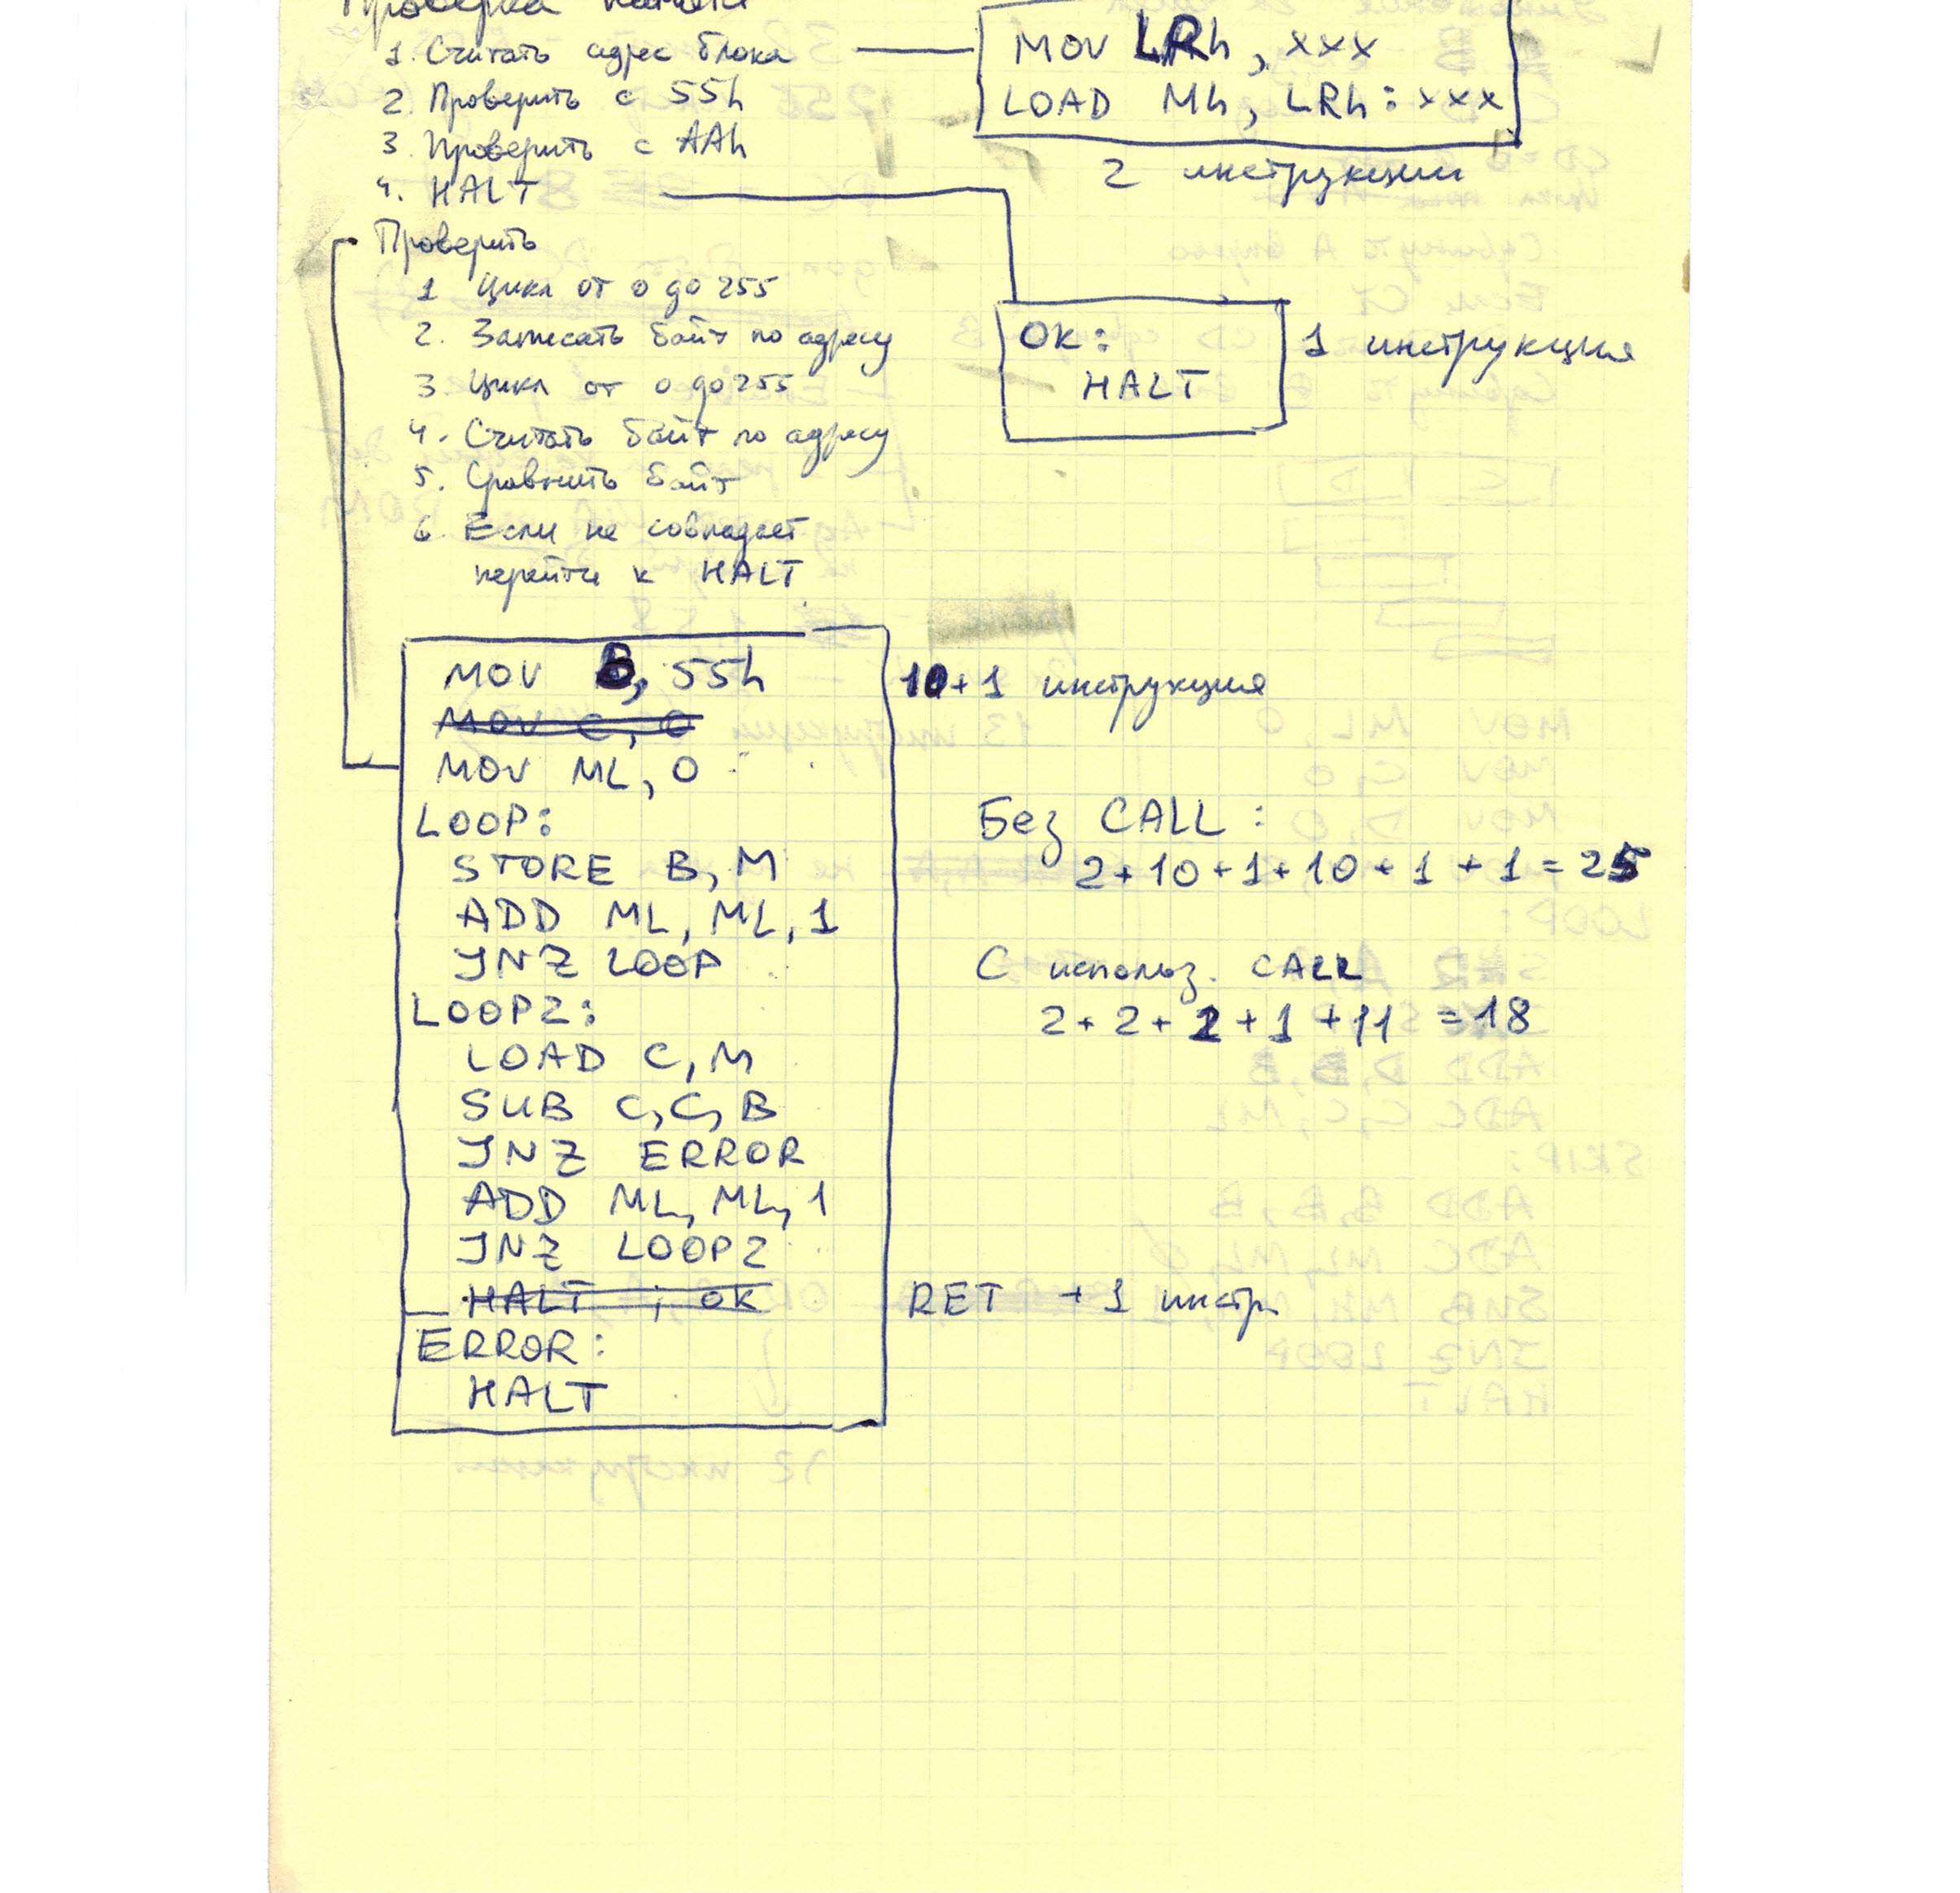 Проверка памяти
1. Считать адрес блока
2. Проверить с 55h
3. Проверить с AAh
4. HALT
MOV LRh, xxx
LOAD Mh, LRh: xxx
2 инструкции
Проверить
1 Цикл от 0 до 255
2. Записать байт по адресу
3. Цикл от 0 до 255
4. Считать байт по адресу
5. Сравнить байт
6. Если не совпадает
перейти к HALT
OK:
HALT
1 инструкция
MOV B, 55h
MOV C, 0
MOV ML, 0
LOOP:
STORE B, M
ADD ML, ML, 1
JNZ LOOP
LOOP2:
LOAD C, M
SUB C, C, B
JNZ ERROR
ADD ML, ML, 1
JNZ LOOP2
HALT ; OK
ERROR:
HALT
10+1 инструкция
Без CALL:
2+10+1+10+1+1=25
С использ. CALL
2+2+2+1+11 =18
RET +1 инстр.